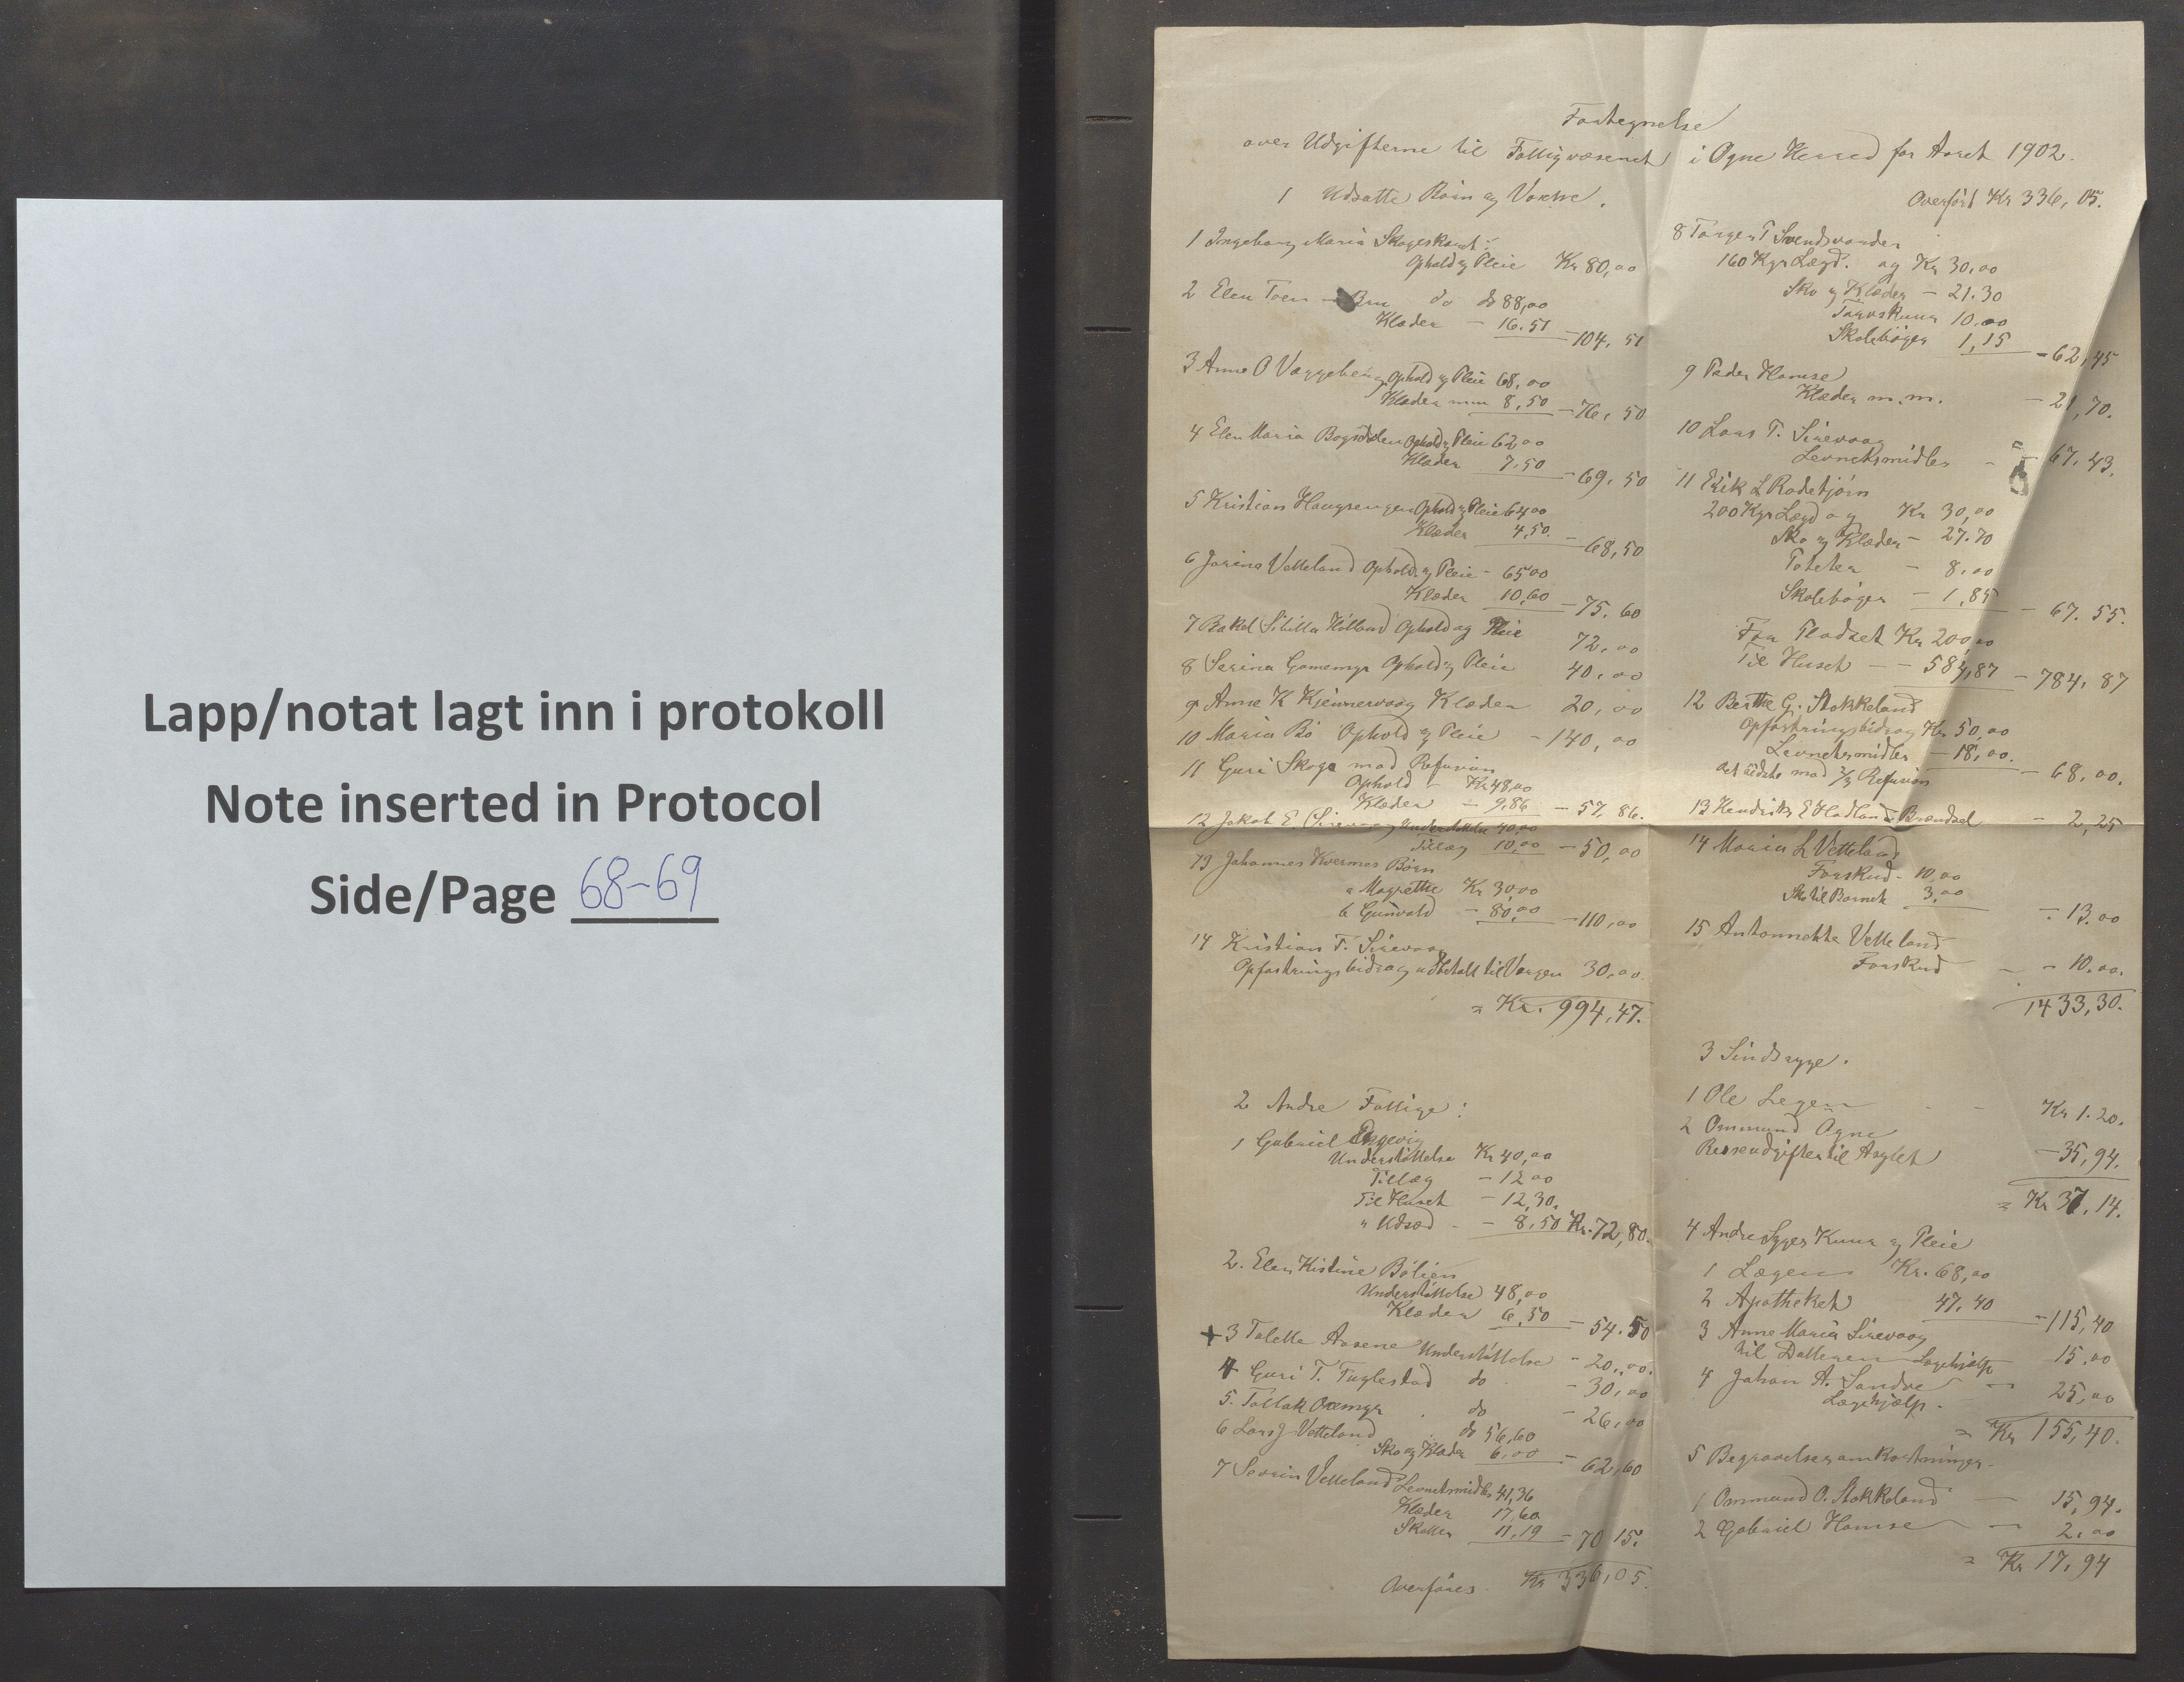 Lapp/notat lagt inn i protokoll
Note inserted in Protocol
Side/Page 68-69
Fortegnelse
over Udgifterne til Fattigvæsenet i Ogne Herred for Aaret 1902.
1 Udsatte Børn og Voxne.
1 Ingeborg Maria Skogeskaret:
Ophold og Pleie Kr 80,00
2 Elen Toen - Bru do do 88,00
Klæder - 16.51 - 104,51
3 Anne O Vaggeberg Ophold og Pleie 68,00
Klæder mm 8,50 - 76,50
4 Elen Maria Bogsdalen Ophold og Pleie 62,00
Klæder 7.50 - 69,50
5 Kristian Haugsengen Ophold og Pleie 64,00
Klæder 4,50. - 68,50
6 Jorina Vetteland Ophold og Pleie - 65,00
Klæder 10,60 - 75.60
7 Rakel Sibilla Hølland Ophold og Pleie 72,00
8 Serina Gomemyr Ophold og Pleie 40,00
9 Anne K Kjennervaag Klæder 20,00
10 Maria Bø Ophold og Pleie - 140,00
11 Guri Skoge mod Refusion
Ophold - Kr 48,00
Klæder - 9,86 - 57,86.
12 Jakob E. Sirevaag Understøttelse 40,00
Tillæg 10,00 - 50,00
13 Johannes Kvermes Børn
a Magrethe Kr 30,00
b Gunvald - 80,00 - 110,00
14 Kristian T. Sirevaag
Opfostringsbidrag udbetalt til Vergen 30,00
= Kr. 994,47.
2 Andre Fattige:
1 Gabriel
Understøttelse Kr 40,00
Tillæg - 12,00
Til Huset - 12,30.
" Udsæd - - 8,50 Kr. 72,80.
2. Elen Kistine Bølien
Understøttelse 48,00
Klæder 6,50 - 54.50
+ 3 Talette Aasene Understøttelse - 20,00.
4 Guri T. Fuglestad do - 30,00
5. Tollak Oremyr do - 26,00
6 Lars J Vetteland do 56,60
Sko og Klæder 6,00 - 62,60
7 Sevrin Vetteland Levnetsmidler 41,36
Klæder 17,60
Skatter 11,19 - 70 15.
Overføres Kr 336,05.
Overført Kr 336,05.
8 Torger T Svendsvarder
160 Kgr Lægd. og Kr 30,00
Sko og Klæder - 21.30
Torvskuur 10,00
Skolebøger 1,15 - 62,45
9 Peder Hamse
Klæder m.m. - 21,70.
10 Lars T. Sirevaag
Levnetsmidler - 67.43.
11 Erik L Rødetjørn
200 Kgr Lægd og Kr 30,00
Sko og Klæder - 27.70
Poteter - 8,00
Skolebøger - 1,85 - 67.55.
For Pladset Kr 200,00
Til Huset - - 584,87 - 784,87
12 Berthe G. Stokkeland
Opfostringsbidrag Kr 50,00
Levnetsmidler - 18,00.
det sidste mod 2/3 Refusion - 68,00.
13 Hendrik E Hadland Brændsel - 2,25
14 Maria L Vetteland
Forskud - 10,00
Sko til Barnet 3,00 - 13.00
15 Antonnette Vetteland
Forskud - - 10,00.
1433,30.
3 Sindsyge.
1 Ole Legen - - Kr 1.20.
2 Ommund Ogne
Reiseudgifter til Asylet - 35,94.
= Kr 37,14.
4 Andre Syges Kuur og Pleie
1 Lægen Kr. 68,00
2 Apotheket 47,40 - 115,40
3 Anne Maria Sirevaag
til Datteren Lægehjælp 15,00
4 Johan A. Sandve - 25,00
Lægehjælp.
= Kr 155,40.
5 Begravelsesomkostninger.
1 Ommund O. Stokkeland - 15,94.
2 Gabriel Hamse - 2,00
= Kr 17,94